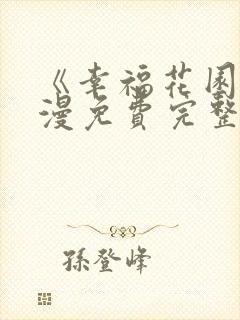 《幸福花园
漫免費完整
孫登峰